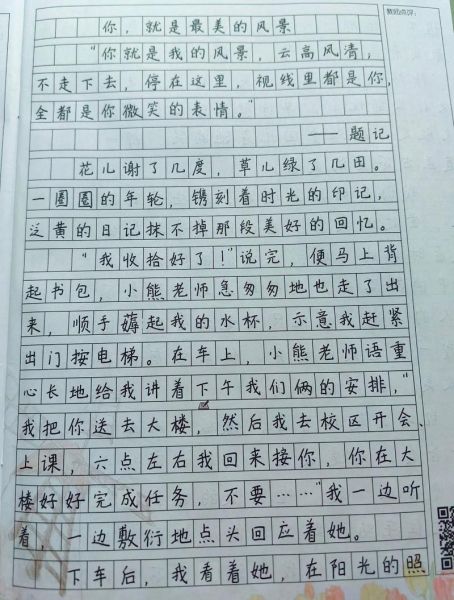 你，就是最美的风景
“你就是我的风景，云高风清，
不走下去，停在这里，视线里都是你，
全都是你微笑的表情。”
——题记
花儿谢了几度，草儿绿了几田。
一圈圈的年轮，镌刻着时光的印记，
泛黄的日记抹不掉那段美好的回忆。
“我收拾好了！”说完，便马上背
起书包，小熊老师急匆匆地也走了出
来，顺手薅起我的水杯，示意我赶紧
出门按电梯。在车上，小熊老师语重
心长地给我讲着下午我们俩的安排，“
我把你送去大楼，然后我去校区开会、
上课，六点左右我回来接你，你在大
楼好好完成任务，不要……”我一边听
着，一边敷衍地点头回应着她。
下车后，我看着她，在阳光的照